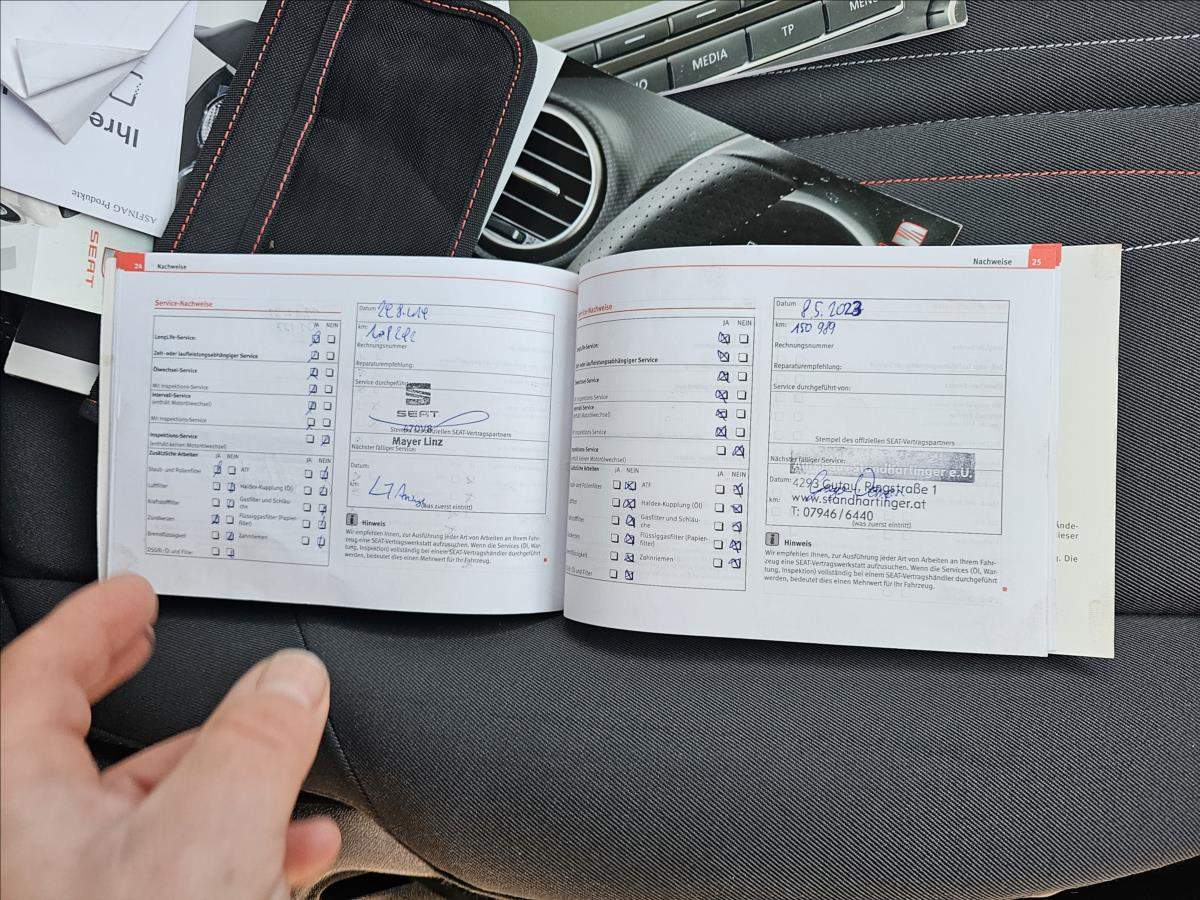 MENU
TP
MEDIA
Ihre
ASFINAG Produkte
SEAT
24 Nachweise
Service-Nachweise
JA NEIN
LongLife-Service:
Zeit- oder laufleistungsabhängiger Service
Ölwechsel-Service
Mit Inspektions-Service
Intervall-Service
(enthält Motorölwechsel)
Mit Inspektions-Service
Inspektions-Service
(enthält keinen Motorölwechsel)
Zusätzliche Arbeiten JA NEIN JA NEIN
Staub- und Pollenfilter ATF
Luftfilter Haldex-Kupplung (Öl)
Kraftstofffilter Gasfilter und Schläu-
che
Zündkerzen Flüssiggasfilter (Papier-
filter)
Bremsflüssigkeit Zahnriemen
DSG®: Öl und Filter
Datum
km:
Rechnungsnummer
Reparaturempfehlung:
Service durchgeführt
SEAT
Stempel des offiziellen SEAT-Vertragspartners
Mayer Linz
Nächster fälliger Service:
Datum:
km:
(was zuerst eintritt)
Hinweis
Wir empfehlen Ihnen, zur Ausführung jeder Art von Arbeiten an Ihrem Fahr-
zeug eine SEAT-Vertragswerkstatt aufzusuchen. Wenn die Services (Öl, War-
tung, Inspektion) vollständig bei einem SEAT-Vertragshändler durchgeführt
werden, bedeutet dies einen Mehrwert für Ihr Fahrzeug.
Nachweise 25
Service-Nachweise
JA NEIN
LongLife-Service:
oder laufleistungsabhängiger Service
Inspektions-Service
Inspektions-Service
JA NEIN JA NEIN
ATF
Haldex-Kupplung (Öl)
Gasfilter und Schläu-
che
Flüssiggasfilter (Papier-
filter)
Zahnriemen
Öl und Filter
Datum 8.5.2023
km: 150 989
Rechnungsnummer
Reparaturempfehlung:
Service durchgeführt von:
Stempel des offiziellen SEAT-Vertragspartners
Nächster fälliger Service:
Standhartinger e.U.
Datum: 4293 Gutau, Ringstraße 1
km: www.standhartinger.at
T: 07946/6440
(was zuerst eintritt)
Hinweis
Wir empfehlen Ihnen, zur Ausführung jeder Art von Arbeiten an Ihrem Fahr-
zeug eine SEAT-Vertragswerkstatt aufzusuchen. Wenn die Services (Öl, War-
tung, Inspektion) vollständig bei einem SEAT-Vertragshändler durchgeführt
werden, bedeutet dies einen Mehrwert für Ihr Fahrzeug.